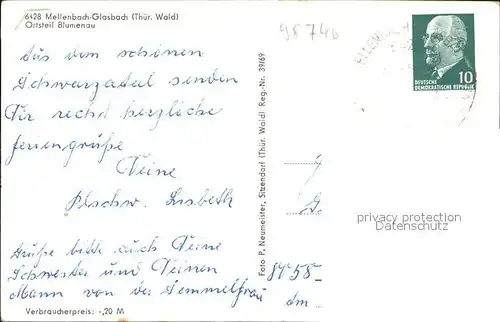 6428 Mellenbach-Glasbach (Thür. Wald)
Ortsteil Blumenau
98746
Aus dem schönen
Schwarzatal senden
Dir recht herzliche
Feriengrüße
Deine
Lisbeth
Grüße bitte auch Deine
Schwester und Deinen
Mann von der Semmelfrau
Verbraucherpreis: -,20 M
Foto P. Neumeister, Sitzendorf (Thür. Wald) Reg.-Nr. 39169
10
DEUTSCHE
DEMOKRATISCHE REPUBLIK
privacy protection
VEREMART.DE
8458